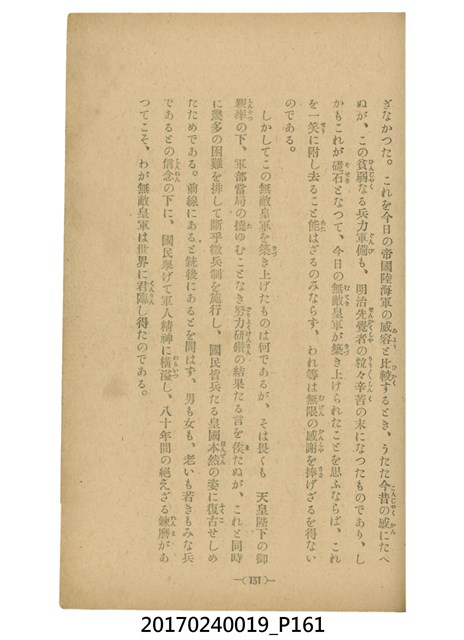 ぎなかつた。これを今日の帝國陸海軍の威容と比較するとき、うたた今昔の感にたへ
ぬが、この貧弱なる兵力軍備も、明治先覺者の粒々辛苦の末になつたものであり、し
かもこれが礎石となつて、今日の無敵皇軍が築き上げられたことを思ふならば、これ
を一笑に附し去ること能はざるのみならず、われ等は無限の感謝を捧げざるを得ない
のである。
しかしてこの無敵皇軍を築き上げたものは何であるか、そは畏くも 天皇陛下の御
親率の下、軍部當局の撓ゆむことなき努力研鑽の結果たる言を俟たぬが、これと同時
に幾多の困難を排して斷乎徵兵制を施行し、國民皆兵たる皇國本然の姿に復古せしめ
たためである。前線にあると銃後にあるとを問はず、男も女も、老いも若きもみな兵
であるとの信念の下に、國民擧げて軍人精神に橫溢し、八十年間の絕えざる鍊磨があ
つてこそ、わが無敵皇軍は世界に君臨し得たのである。
—( 151 )—
20170240019_P161